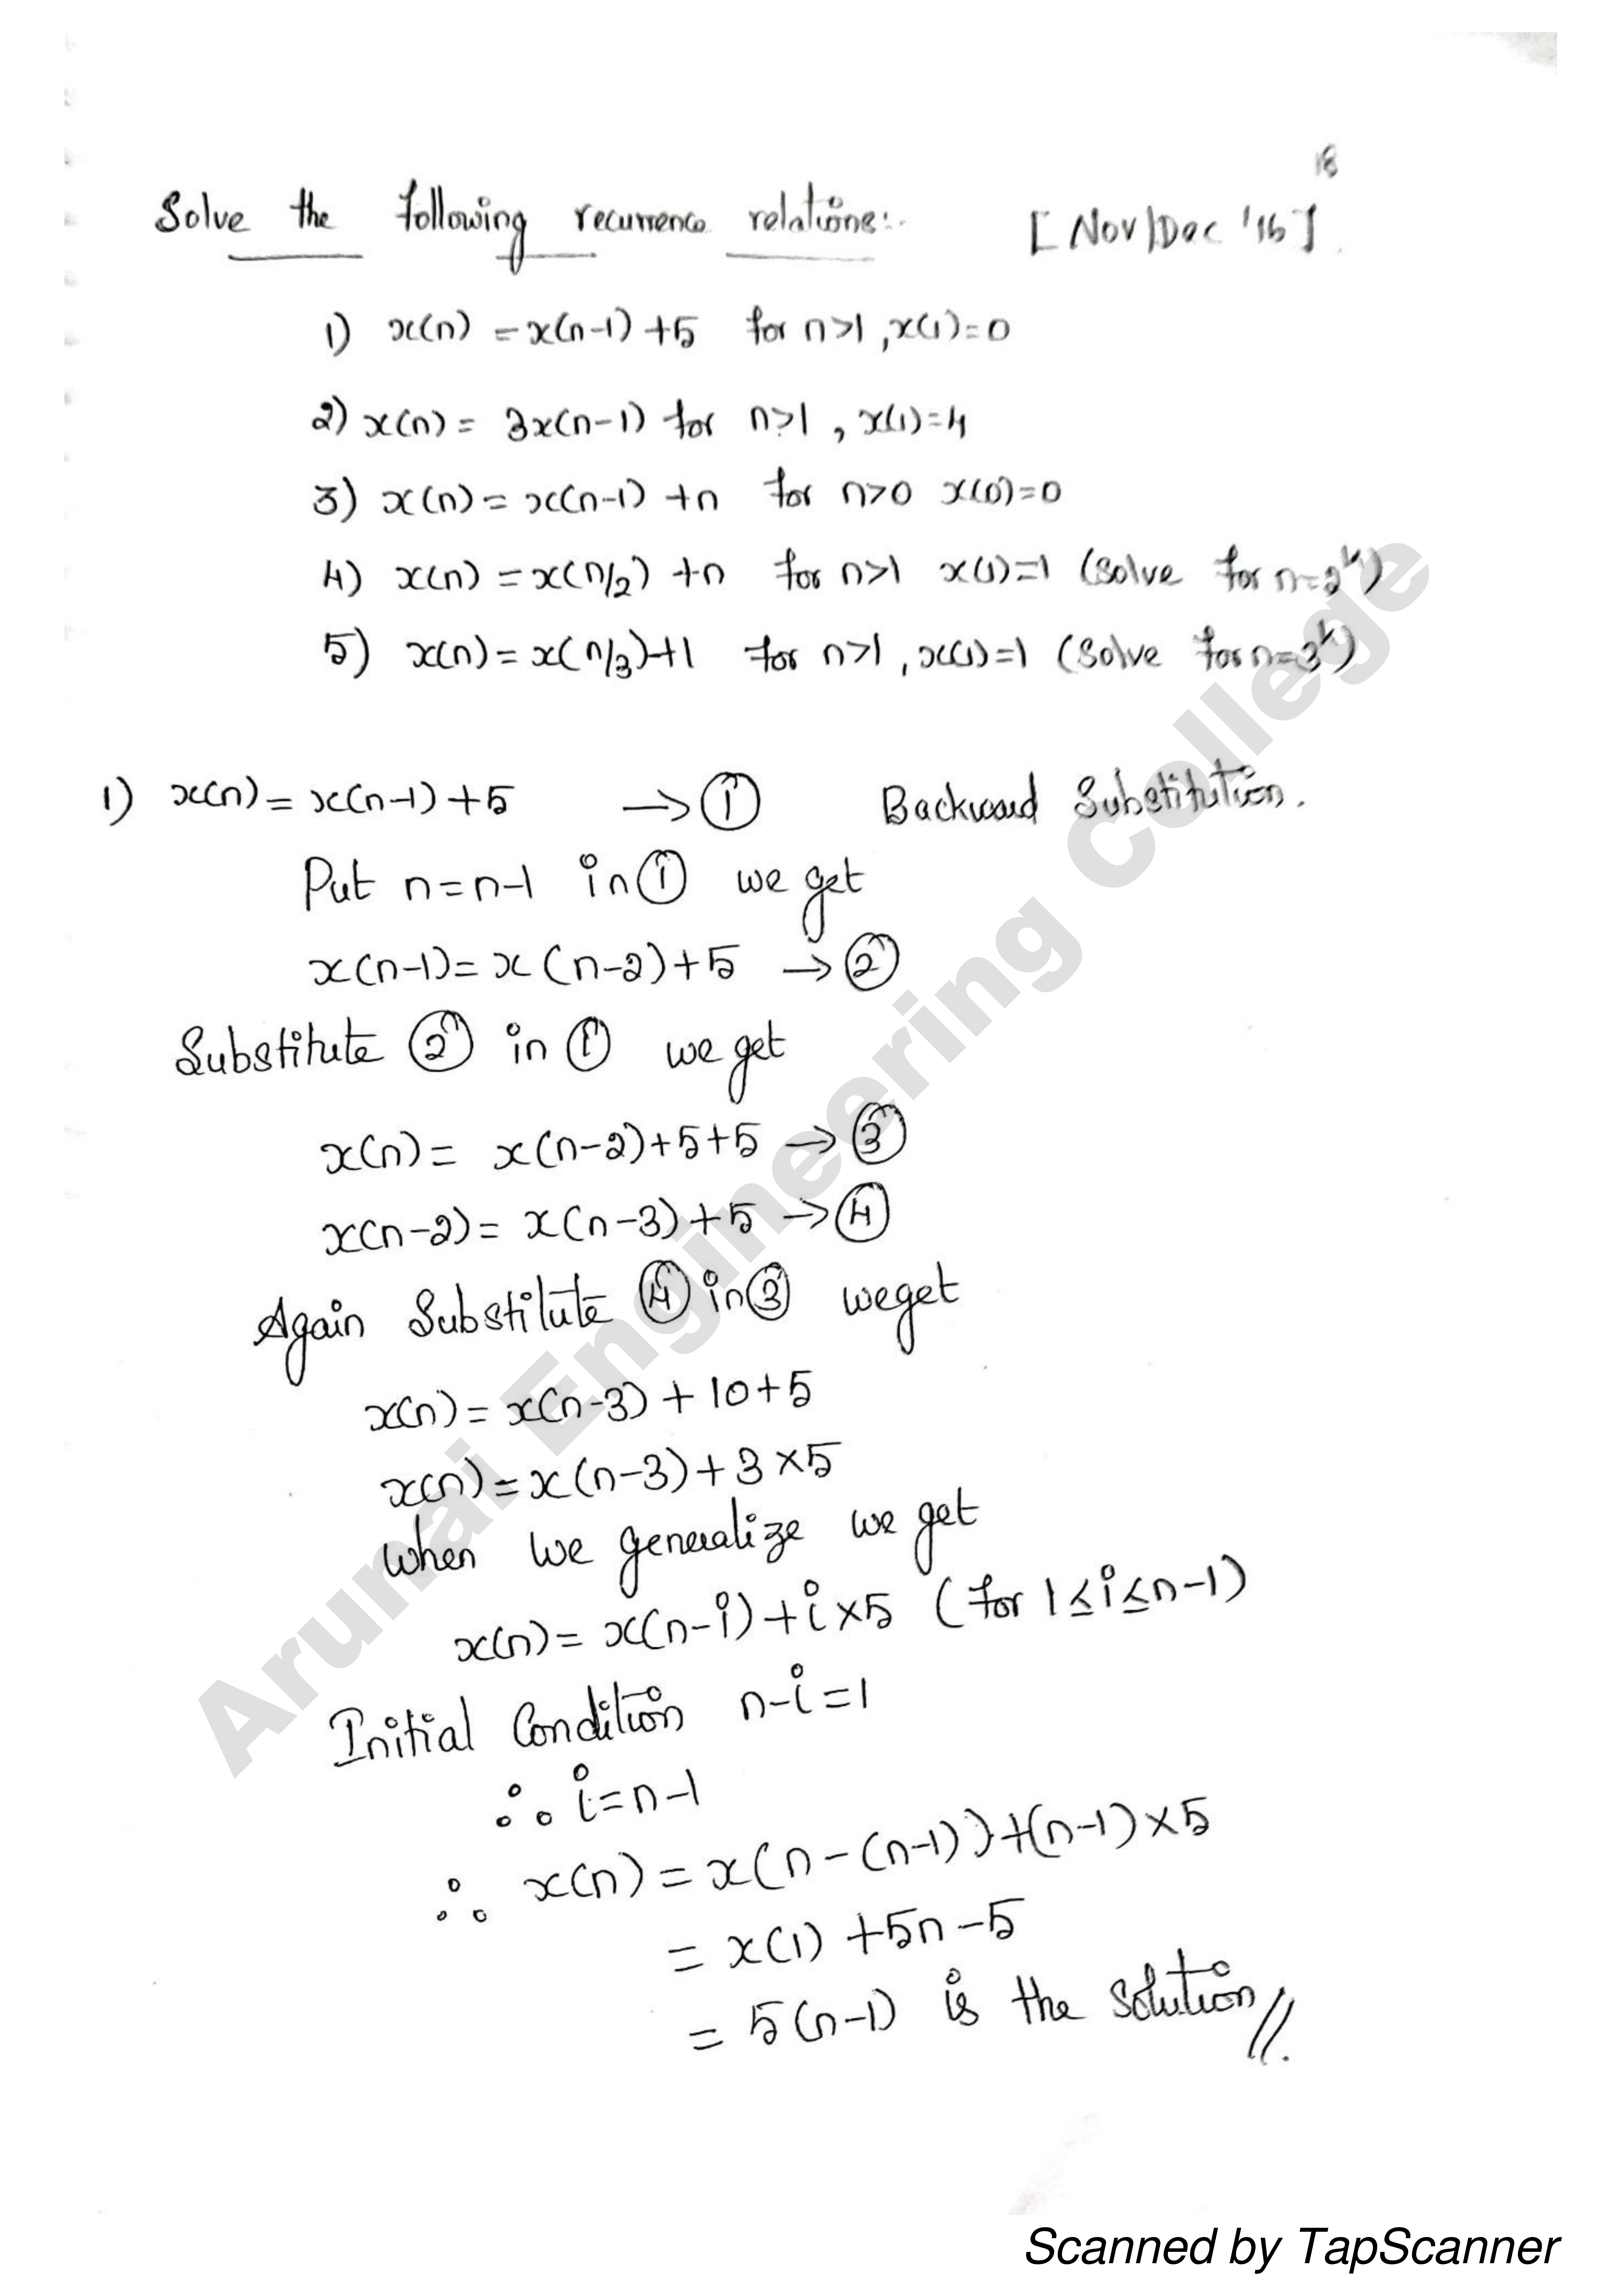 18
Solve the following recurrence relations:- [Nov/Dec '16]
1) x(n) = x(n-1) +5 for n>1, x(1)=0
2) x(n) = 3x(n-1) for n>1, x(1)=4
3) x(n) = x(n-1) +n for n>0 x(0)=0
4) x(n) = x(n/2) +n for n>1 x(1)=1 (Solve for n=2^k)
5) x(n) = x(n/3)+1 for n>1, x(1)=1 (Solve for n=3^k)
1) x(n) = x(n-1)+5 → ① Backward Substitution.
Put n=n-1 in ① we get
x(n-1)= x(n-2)+5 → ②
Substitute ② in ① we get
x(n) = x(n-2)+5+5 → ③
x(n-2)= x(n-3)+5 → ④
Again Substitute ④ in ③ we get
x(n) = x(n-3) + 10+5
x(n) = x(n-3) + 3×5
When we generalize we get
x(n) = x(n-i) + i×5 (for 1≤i≤n-1)
Initial Condition n-i=1
∴ i=n-1
∴ x(n) = x(n-(n-1))+(n-1)×5
= x(1) +5n-5
= 5(n-1) is the solution //.
Arunai Engineering College
Scanned by TapScanner